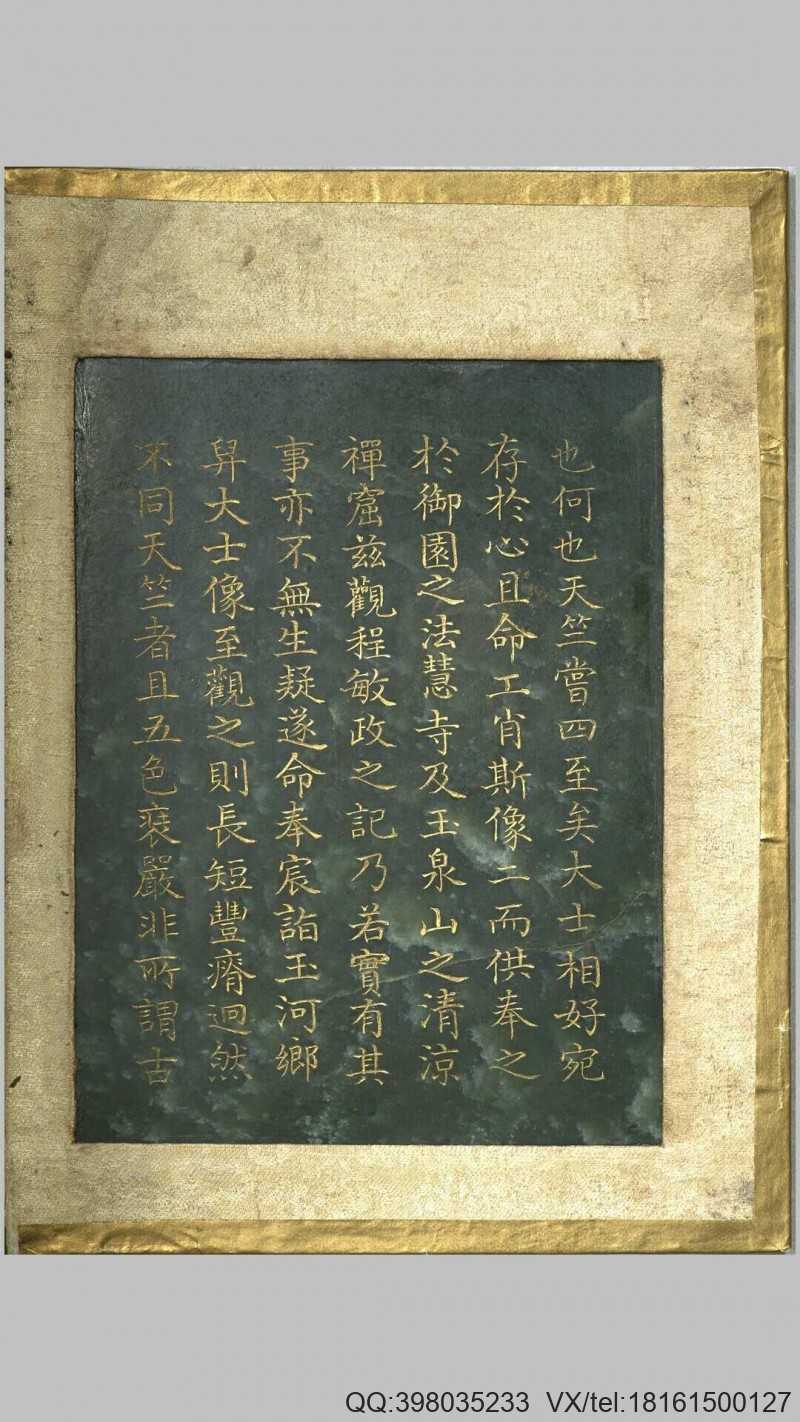 也何也天竺嘗四至矣大士相好宛
存於心且命工肖斯像二而供奉之
於御園之法慧寺及玉泉山之清涼
禪窟兹觀程敏政之記乃若實有其
事亦不無生疑遂命奉宸詣玉河鄉
舁大士像至觀之則長短豐瘠迥然
不同天竺者且五色裝嚴非所謂古
QQ:398035233 VX/tel:18161500127